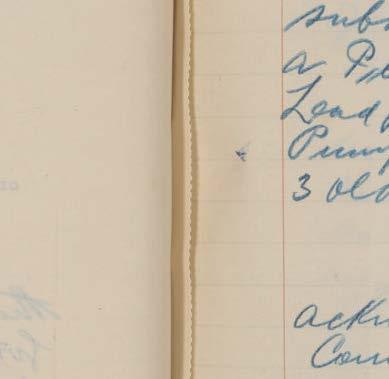 subs
a Pe
Lead
Pump
3 old
ackn
Com